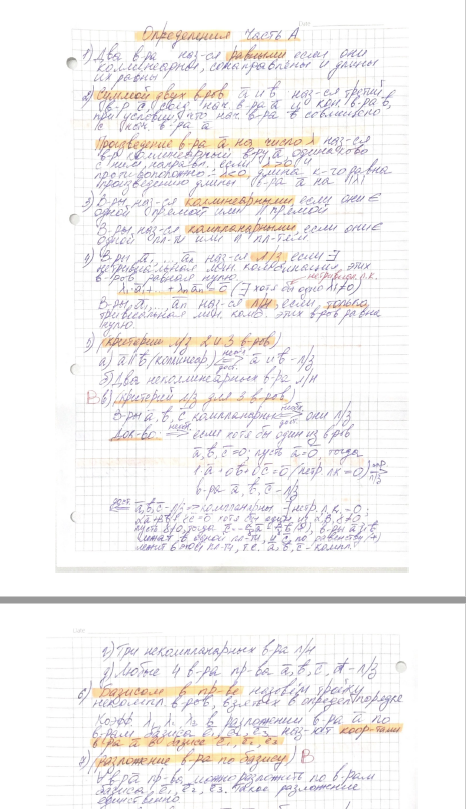 Определения Часть А
1) Два в-ра наз-ся равными если они
коллинеарные, сонаправлены и длины
их равны
2) Суммой двух в-ров a̅ и b̅ наз-ся третий
в-р c̅, соед нач. в-ра a̅ и кон в-ра b̅,
при условии, что нач. в-ра b̅ совмещено
с кон. в-ра a̅
Произведение в-ра a̅ на число λ наз-ся
в-р коллинеарный в-ру a̅, одинаково
с ним направл. если λ>0, и
противоположно - λ<0, длина к-го равна
произведению длины в-ра a̅ на |λ|
3) В-ры наз-ся коллинеарными если они ∈
одной прямой или || прямой
В-ры наз-ся компланарными если они ∈
одной пл-ти или || пл-тям
4) В-ры a̅₁ ... a̅n наз-ся л/з если ∃
нетривиальная лин. комбинация этих
в-ров равная нулю
λ₁a̅₁+...+λna̅n=0 (∃ хотя бы одно λ≠0)
В-ры a̅₁ ... a̅n наз-ся л/н, если только
тривиальная лин. комб. этих в-ров равна
нулю
5) (критерии л/з 2 и 3 в-ров)
а) a̅ || b̅ (коллинеар) необх. дост. a̅ и b̅ - л/з
б) Два неколлинеарных в-ра л/н
В в) (критерий л/з для 3 в-ров)
В-ры a̅, b̅, c̅ компланарны необх. дост. они л/з
Док-во: необх. ⇒ если хотя бы один из в-ров
a̅, b̅, c̅ = 0; пусть a̅=0, тогда
1·a̅ + 0b̅ + 0c̅ = 0 (нетр лк = 0) ⇒
в-ра a̅, b̅, c̅ - л/з
дост. ⇐ a̅, b̅, c̅ - л/з
лежат в одной пл-ти, и c̅ по равенству (*)
лежит в этой пл-ти, т.е. a̅, b̅, c̅ - компл.
г) Три некомпланарных в-ра л/н
д) Любые 4 в-ра пр-ва a̅, b̅, c̅, d̅ - л/з
6) Базисом в пр-ве назовём тройку
некомпл. в-ров, взятых в определ порядке
Коэфф λ₁ λ₂ λ₃ в разложении в-ра a̅ по
в-рам базиса e̅₁, e̅₂, e̅₃ наз-ют коор-тами
в-ра a̅ в базисе e̅₁, e̅₂, e̅₃
7) (разложение в-ра по базису) В
∀ в-р a̅ пр-ва можно разложить по в-рам
базиса e̅₁, e̅₂, e̅₃. Такое разложение
единственно.